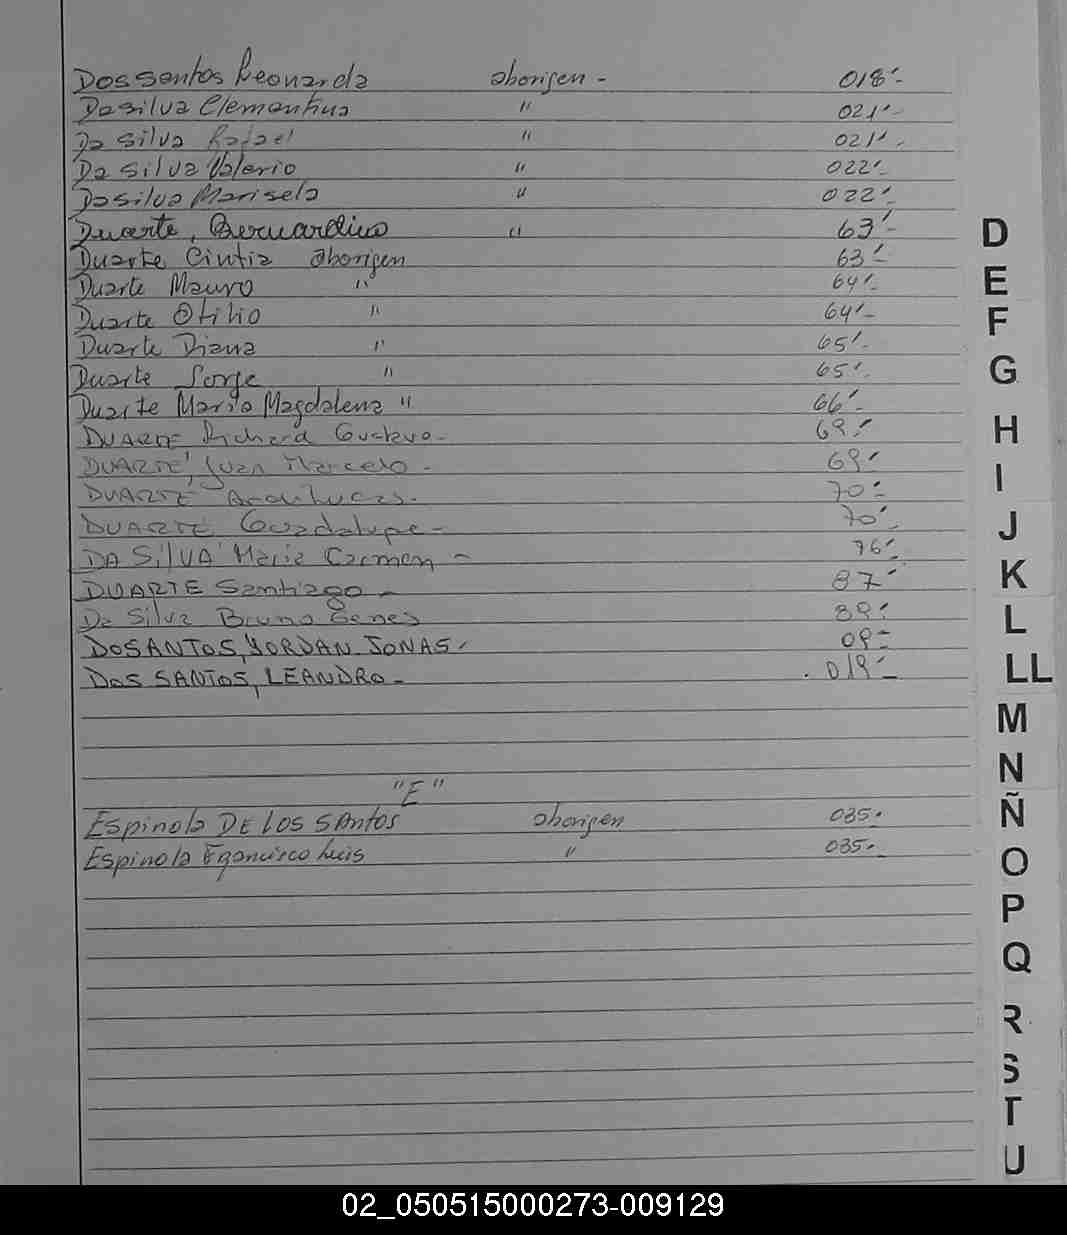 Dos santos Leonarda aborigen - 018'-
Da silva Clementina " 021'-
Da silva Rafael " 021'-
Da silva Valerio " 022'-
Da silva Marisela " 022'-
Duarte, Bernardino " 63'-
Duarte Cintia aborigen 63'-
Duarte Mauro " 64'-
Duarte Otilio " 64'-
Duarte Diana " 65'-
Duarte Jorge " 65'-
Duarte Maria Magdalena " 66'-
DUARTE Richard Gustavo - 69'-
DUARTE, Juan Marcelo - 69'-
DUARTE 70'-
DUARTE Guadalupe - 70'-
DA SilVA Maria Carmen - 76'-
DUARTE Santiago - 87'-
Da Silva Bruno 89'-
DOSANTOS, YORDAN JONAS - 09'-
DOS SANTOS, LEANDRO - 019'-
"E"
Espinola DE LOS SANtos aborigen 035-
Espinola Francisco Luis " 035-
D
E
F
G
H
I
J
K
L
LL
M
N
Ñ
O
P
Q
R
S
T
U
02_050515000273-009129